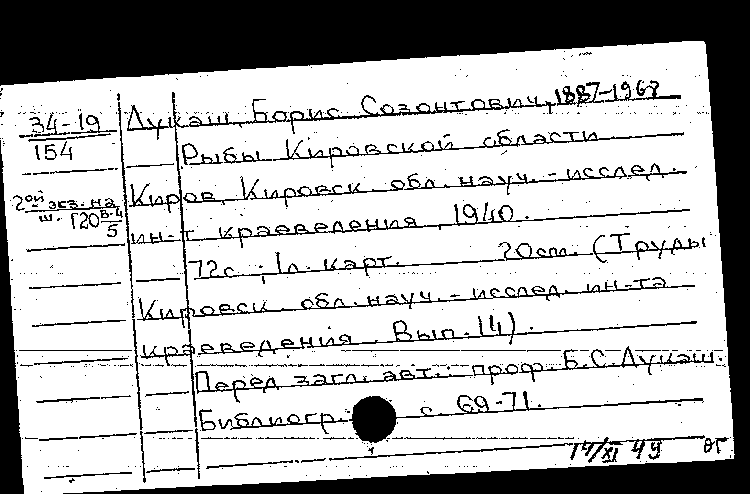 34-19
154
2ой экз. на
ш. Г20 В-4
5
Лукаш, Борис Созонтович, 1887-1968
Рыбы Кировской области
Киров, Кировск. обл. науч.-исслед.
ин-т краеведения, 1940.
72с.; 1л. карт. 20см. (Труды
Кировск. обл. науч.-исслед. ин-та
краеведения. Вып. 14).
Перед загл. авт.: проф. Б.С. Лукаш.
Библиогр.: с. 69-71.
17/XI 49